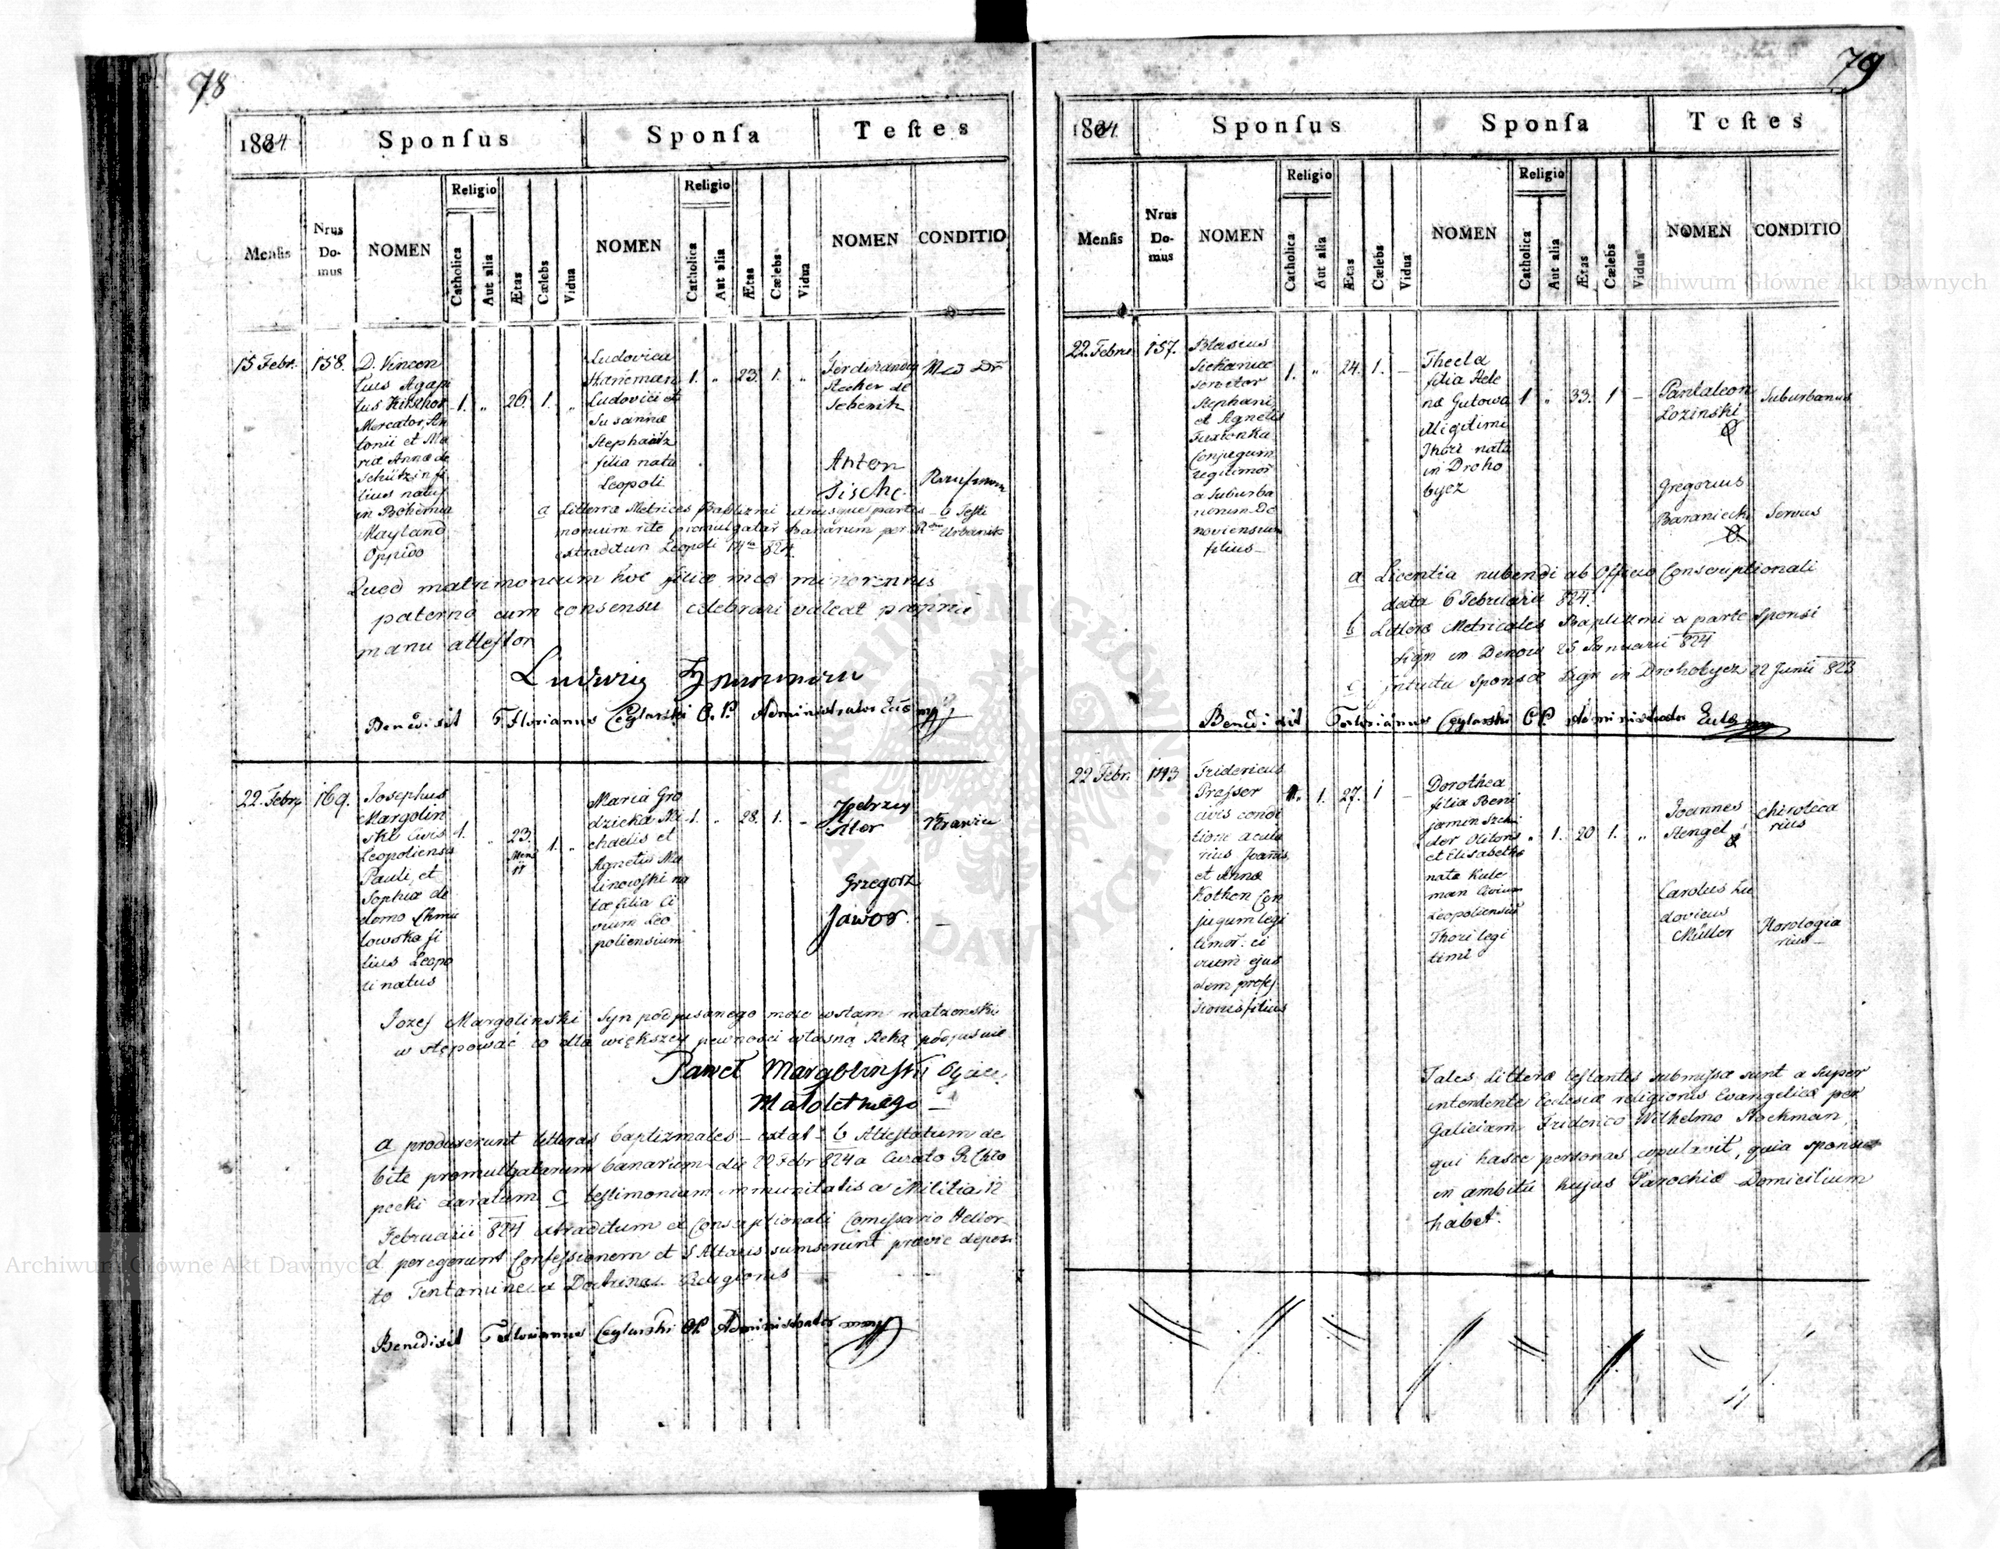 78
1824
Sponſus
Sponſa
Teſtes
Menſis
Nrus Do-mus
NOMEN
Religio
Catholica
Aut alia
Ætas
Cælebs
Vidua
NOMEN
Religio
Catholica
Aut alia
Ætas
Cælebs
Vidua
NOMEN
CONDITIO
15 Febr.
158.
D. Vincen
tius Agapi
tus
Mercator, An
tonii et Ma
riæ Annæ de
fi
lius natus
in Bohemia
Mayland
Oppido
1.
„
26.
1.
„
Ludovica
Haneman
Ludovici et
Susannæ
filia nata
Leopoli
1.
„
23.
1.
„
Ferdinandus
Stecher de
Sebenitz
Med Dr
Anton
a Litteræ Metrices Baptizmi utriusque partis b Testi
monium rite promulgatar banarum per
extraditum Leopoli 824
Quod matrimonium hoc filiæ meæ minorennis
paterno cum consensu celebrari valeat propria
manu attestor
Ludwig
Benedixit F. Florianus Ceglarski O. P. Administrator
22. Febr.
169.
Josephus
Margolin
ski Civis
Leopoliensis
Pauli et
Sophiæ de
domo Chmie
lowska fi
lius Leopo
li natus
1.
„
23.
Mens
11
1.
„
Maria Gro
dzicka Mi
chaelis et
Agnetis Ma
linowski na
tæ filia Ci
vium Leo
poliensium
1.
„
28.
1.
„
Grzegorz
Jawor
–
Jozef Margolinski Syn podpisanego moze wstan matzenski
wstępować co dla większey pewności własną Ręką podpisuie
Paweł Margolinski Oyciec
Małoletniego
a produxerunt litteras baptizmales b Attestatum de
bite promulgatarum banarum die 22 Febr 824 a Curato
c testimonium immunitatis a Militia 12
Februarii 824 extraditum
d peregerunt Confessionem et S Altaris sumserunt prævie deposi
to Tentamine e Doctrina Religionis
Benedixit F Florianus Ceglarski OP Administrator
79
1824.
Sponſus
Sponſa
Teſtes
Menſis
Nrus Do-mus
NOMEN
Religio
Catholica
Aut alia
Ætas
Cælebs
Vidua
NOMEN
Religio
Catholica
Aut alia
Ætas
Cælebs
Vidua
NOMEN
CONDITIO
22. Febru
157.
Blasius
servitor
Stephani
et Agnetis
Conjugum
legitimor
a Suburba
filius
1.
„
24.
1.
–
Thecla
filia Hele
næ Gutowa
illigitimi
Thori nata
in Droho
bycz
1
„
33.
1
–
Pantaleon
Lozinski
Suburbanus
Gregorius
Baraniecki
Servus
a Licentia nubendi ab Officio Conscriptionali
data 6 Februarii 824.
b Litteræ Metricales Baptizmi a parte Sponsi
Sign in 25 Januarii 824
c intuitu Sponsæ Sign in Drohobycz 22 Junii 823
Benedixit F Florianus Ceglarski OP Administrator
22 Febr.
Fridericus
Presser
civis condi
tione acula
rius Joanis
et Annæ
Kothen Con
jugum legi
timor. ci
vium ejus
dem profes
sionis filius
1.
27.
1
–
Dorothea
filia Beni
jamin
et Elisabethæ
natæ Kule
man Civium
Leopoliensium
Thori legi
timi
„
1.
20
1.
„
Joannes
Stengel
chiroteca
rius
Carolus Lu
dovicus
Müller
Horologia
rius
Tales Litteræ testantes submissæ sunt a Super
intendente Ecclesiæ religionis Evangelicæ per
Galiciam Friderico Wilhelmo Stockman,
qui hasce personas copulavit, quia sponsus
in ambitu hujus Parochiæ Domicilium
habet.
Archiwum Główne Akt Dawnych
Archiwum Główne Akt Dawnych
ARCHIWUM GŁÓWNE AKT DAWNYCH